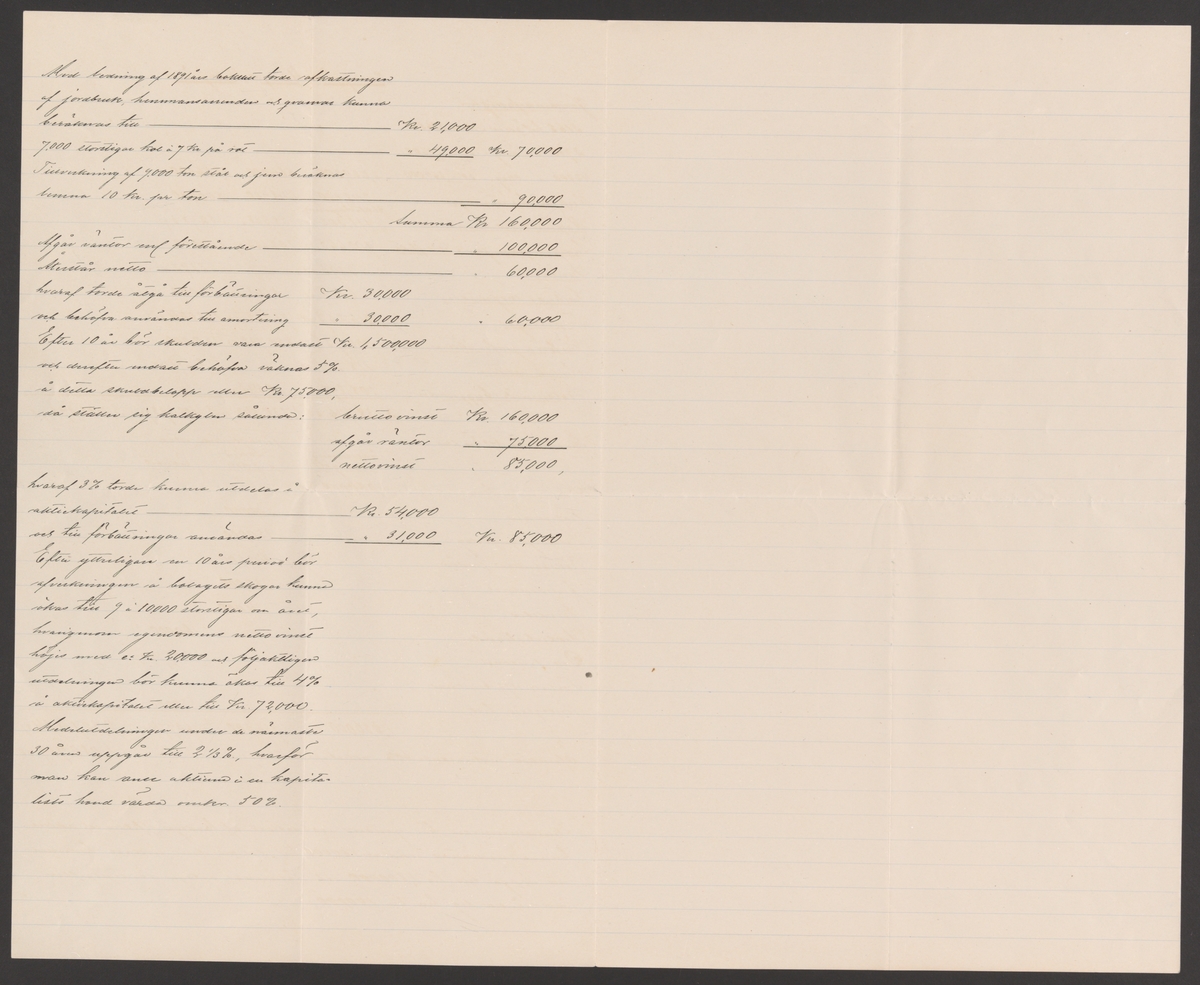 Med ledning af 1891 års bokslut torde afkastningen
af jordbruk, hemmansarrenden och qvarnar kunna
beräknas till Kr. 21,000
7,000 storstigar kol à 7 Kr på rot " 49,000 Kr. 70,000
Tillverkning af 9,000 ton stål och jern beräknas
lemna 10 Kr. pr ton " 90,000
Summa Kr 160,000
Afgår räntor enl förestående " 100,000
Återstår netto " 60,000
hvaraf torde åtgå till förbättringar Kr. 30,000
och behöfva användas till amortering " 30,000 " 60,000
Efter 10 år bör skulden vara endast Kr. 1,500,000
och derefter endast behöfva räknas 5%
å detta skuldbelopp eller Kr. 75,000,
då ställer sig kalkylen sålunda: bruttovinst Kr. 160,000
afgår räntor " 75,000
nettovinst " 85,000,
hvaraf 3% torde kunna utdelas å
aktiekapitalet Kr. 54,000
och till förbättringar användas " 31,000 Kr. 85,000
Efter ytterligare en 10 års period bör
afverkningen å bolagets skogar kunna
ökas till 9 à 10,000 storstigar om året,
hvarigenom egendomens nettovinst
höjes med c: Kr. 20,000 och följaktligen
utdelningen bör kunna ökas till 4%
å aktiekapitalet eller till Kr. 72,000.
Medelutdelningen under de närmaste
30 åren uppgår till 2 1/3%, hvarför
man kan anse aktierna i en kapita-
lists hand värda omkr. 50%.